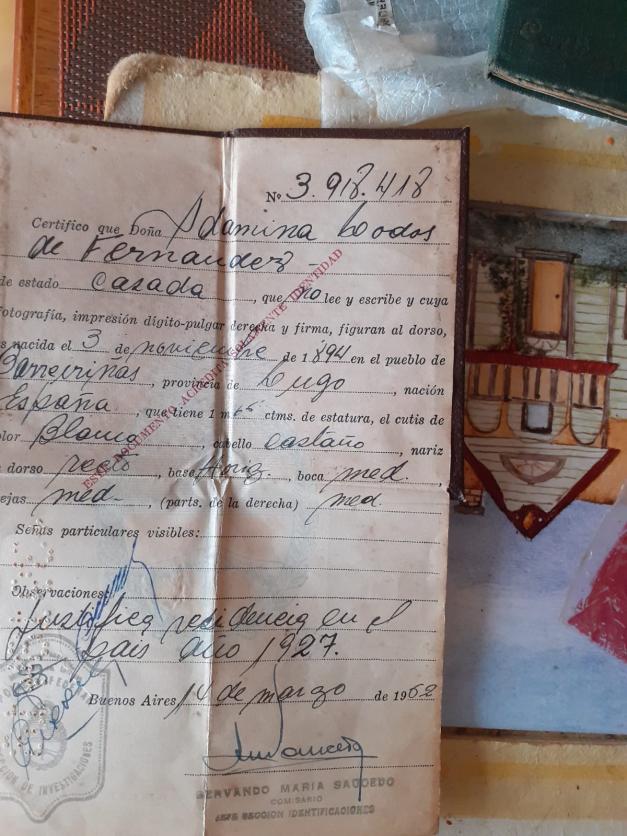 Nº 3.918.418
Certifico que Doña Adamina
de Fernandez
de estado Casada, que no lee y escribe y cuya
fotografía, impresión dígito-pulgar derecha y firma, figuran al dorso,
es nacida el 3 de noviembre de 1.894 en el pueblo de
provincia de Lugo, nación
España, que tiene 1 m 65 ctms. de estatura, el cutis de
olor Blanco, cabello castaño, nariz
dorso recto, base Horiz., boca med.,
ejas med., (parts. de la derecha) med.
Señas particulares visibles:
Observaciones:
Justifica residencia en el
pais año 1927.
Buenos Aires, 14 de marzo de 1962
ESTE DOCUMENTO ACREDITA SOLAMENTE IDENTIDAD
SERVANDO MARIA SAUCEDO
COMISARIO
JEFE SECCION IDENTIFICACIONES
DE INVESTIGACIONES